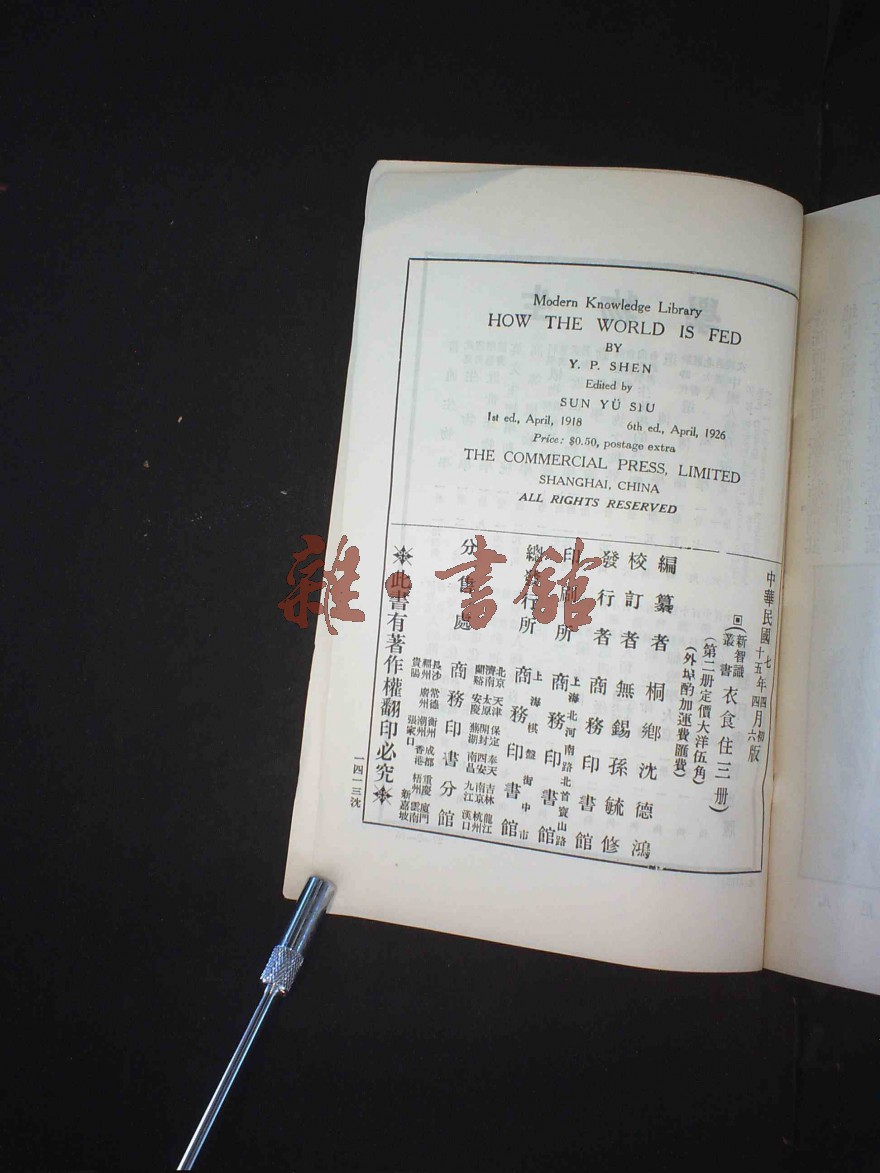 Modern Knowledge Library
HOW THE WORLD IS FED
BY
Y. P. SHEN
Edited by
SUN YÜ SIU
1st ed., April, 1918 6th ed., April, 1926
Price: $0.50, postage extra
THE COMMERCIAL PRESS, LIMITED
SHANGHAI, CHINA
ALL RIGHTS RESERVED
中華民國七年四月初版
十五年四月六版
新智識叢書
衣食住三册
(第二册定價大洋伍角)
(外埠酌加運費匯費)
編纂者 桐鄉沈德鴻
校訂者 無錫孫毓修
發行者 商務印書館
印刷所 上海北河南路北首寶山路 商務印書館
總發行所 上海棋盤街中市 商務印書館
分售處 商務印書分館
北京天津保定奉天吉林龍江
濟南太原開封西安南京杭州
蘭谿安慶蕪湖南昌九江漢口
長沙常德衡州成都重慶廈門
福州廣州潮州香港梧州雲南
貴陽 張家口 新嘉坡
此書有著作權翻印必究
一四一三沈
雜·書館